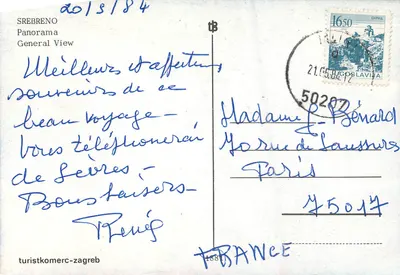 20/5/84
SREBRENO
Panorama
General View
Meilleurs et affectueux
souvenirs de ce
beau voyage -
Vous téléphonerai
de Sèvres. -
Bons baisers -
René
turistkomerc-zagreb
16.50
JUGOSLAVIJA
21.05.84-12
50207
Madame J. Bénard
70 rue de Saussures
Paris
75017
FRANCE